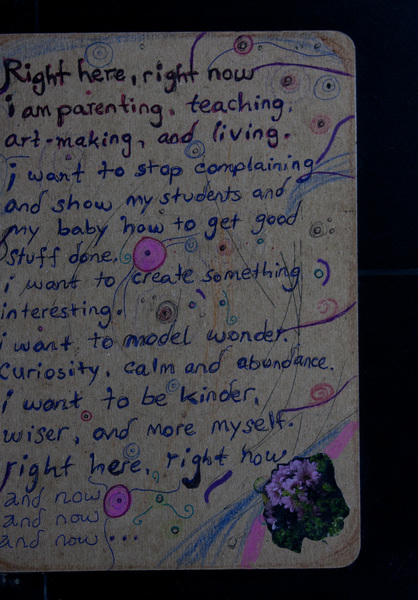 Right here, right now
i am parenting. teaching.
art-making, and living.
i want to stop complaining
and show my students and
my baby how to get good
stuff done.
i want to create something
interesting.
i want to model wonder.
Curiosity, calm and abundance.
i want to be kinder,
wiser, and more myself.
right here, right now
and now
and now
and now...